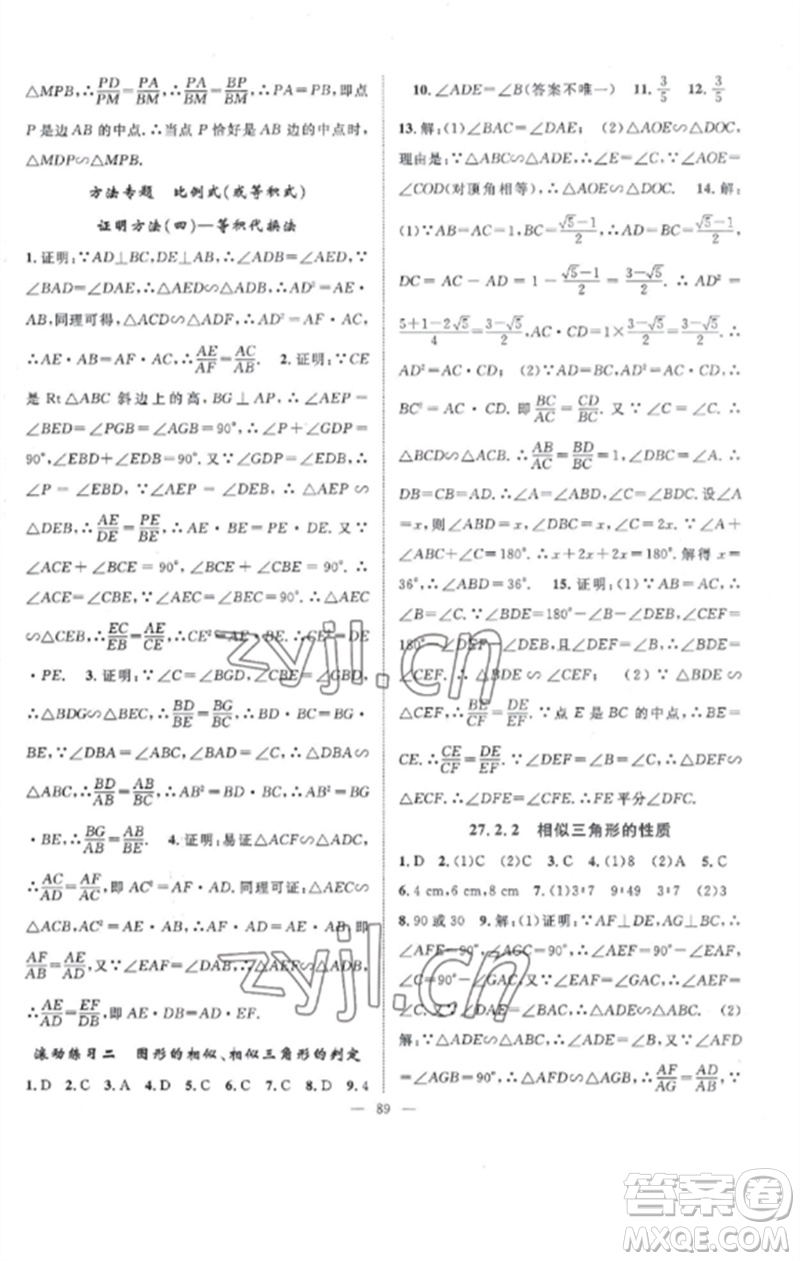 △MPB,∴PD/PM=PA/BM,∴PA/BM=BP/BM,∴PA=PB,即点
P是边AB的中点.∴当点P恰好是AB边的中点时,
△MDP∽△MPB.
方法专题 比例式(或等积式)
证明方法(四)—等积代换法
1.证明:∵AD⊥BC,DE⊥AB,∴∠ADB=∠AED,∵
∠BAD=∠DAE,∴△AED∽△ADB,∴AD²=AE·
AB,同理可得,△ACD∽△ADF,∴AD²=AF·AC,
∴AE·AB=AF·AC,∴AE/AF=AC/AB. 2.证明:∵CE
是Rt△ABC斜边上的高,BG⊥AP,∴∠AEP=
∠DEB=∠PGB=∠AGB=90°,∴∠P+∠GDP=
90°,∠EBD+∠EDB=90°.又∵∠GDP=∠EDB,∴
∠P=∠EBD,又∵∠AEP=∠DEB,∴△AEP∽
△DEB,∴AE/DE=PE/BE,∴AE·BE=PE·DE.又∵
∠ACE+∠BCE=90°,∠CBE+∠BCE=90°,∴
∠ACE=∠CBE,∵∠AEC=∠BEC=90°,∴△AEC
∽△CEB,∴EC/EB=AE/CE,∴CE²=AE·BE,∴CE²=DE
·PE. 3.证明:∵∠C=∠BGD,∠CBE=∠GBD,
∴△BDG∽△BEC,∴BD/BE=BG/BC,∴BD·BC=BG·
BE,∵∠DBA=∠ABC,∠BAD=∠C,∴△DBA∽
△ABC,∴BD/AB=AB/BC,∴AB²=BD·BC,∴AB²=BG
·BE,∴BG/AB=AB/BE. 4.证明:易证△ACF∽△ADC,
∴AC/AD=AF/AC,即AC²=AF·AD.同理可证:△AEC∽
△ACB,∴AC²=AE·AB,∴AF·AD=AE·AB 即
AF/AB=AE/AD,又∵∠EAF=∠DAB,∴△AEF∽△ADB,
∴AE/AD=EF/DB,即AE·DB=AD·EF.
滚动练习二 图形的相似、相似三角形的判定
1.D 2.C 3.A 4.D 5.C 6.C 7.B 8.D 9.4
10.∠ADE=∠B(答案不唯一) 11.3/5 12.3/5
13.解:(1)∠BAC=∠DAE; (2)△AOE∽△DOC,
理由是:∵△ABC∽△ADE,∴∠E=∠C,又∵∠AOE=
∠COD(对顶角相等),∴△AOE∽△DOC. 14.解:
(1)∵AB=AC=1,BC=(√5-1)/2,∴AD=(√5-1)/2,
DC=AC-AD=1-(√5-1)/2=(3-√5)/2.∴AD²=
(5+1-2√5)/4=(3-√5)/2,AC·CD=1×(3-√5)/2=(3-√5)/2.∴
AD²=AC·CD; (2)∵AD=BC,AD²=AC·CD,∴
BC²=AC·CD.即BC/AC=CD/BC.又∵∠C=∠C,∴
△BCD∽△ACB.∴AB/AC=BD/BC=1,∠DBC=∠A.∴
DB=CB=AD.∴∠A=∠ABD,∠C=∠BDC.设∠A
=x,则∠ABD=x,∠DBC=x,∠C=2x.∵∠A+
∠ABC+∠C=180°.∴x+2x+2x=180°.解得x=
36°,∴∠ABD=36°. 15.证明:(1)∵AB=AC,∴
∠B=∠C,∵∠BDE=180°-∠B-∠DEB,∠CEF=
180°-∠DEF-∠DEB,且∠DEF=∠B,∴∠BDE=
∠CEF,∴△BDE∽△CEF; (2)∵△BDE∽
△CEF,∴BE/CF=DE/EF,∵点E是BC的中点,∴BE=
CE.∴CE/CF=DE/EF,∵∠DEF=∠B=∠C,∴△DEF∽
△ECF.∴∠DFE=∠CFE.∴FE平分∠DFC.
27.2.2 相似三角形的性质
1.D 2.(1)C (2)C 3.C 4.(1)8 (2)A 5.C
6.4 cm,6 cm,8 cm 7.(1)3∶7 9∶49 3∶7 (2)3
8.90或30 9.解:(1)证明:∵AF⊥DE,AG⊥BC,∴
∠AFE=90°,∠AGC=90°,∴∠AEF=90°-∠EAF,
∠C=90°-∠GAC,又∵∠EAF=∠GAC,∴∠AEF=
∠C,又∵∠DAE=∠BAC,∴△ADE∽△ABC. (2)
解:∵△ADE∽△ABC,∴∠ADE=∠B,又∵∠AFD
=∠AGB=90°,∴△AFD∽△AGB,∴AF/AG=AD/AB,∵
— 89 —
zyjl.cn
zyjl.cn
答案卷